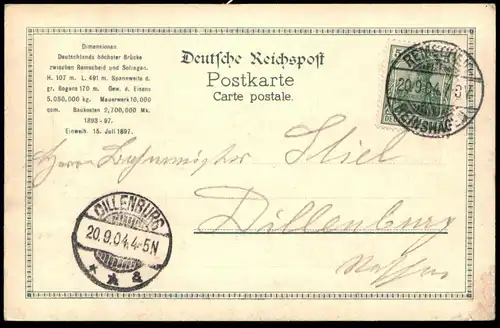 Dimensionen
Deutschlands höchster Brücke
zwischen Remscheid und Solingen.
H. 107 m. L. 491 m. Spannweite d.
gr. Bogens 170 m. Gew. d. Eisens
5,050,000 kg. Mauerwerk 10,000
cbm. Baukosten 2,700,000 Mk.
1893-97.
Einweih. 15. Juli 1897.
Deutsche Reichspost
Postkarte
Carte postale.
REMSCHEID
20.9.04.
REINSHAGEN
Herrn Stiel
Dillenburg
Nassau
DILLENBURG
20.9.04.4-5N
* * a